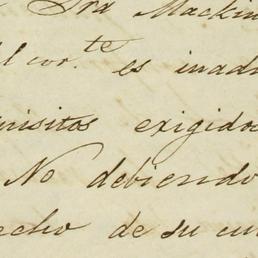 Sra Mackin
cor.te es inad
uisitos exigido
No debiendo
echo de su cu